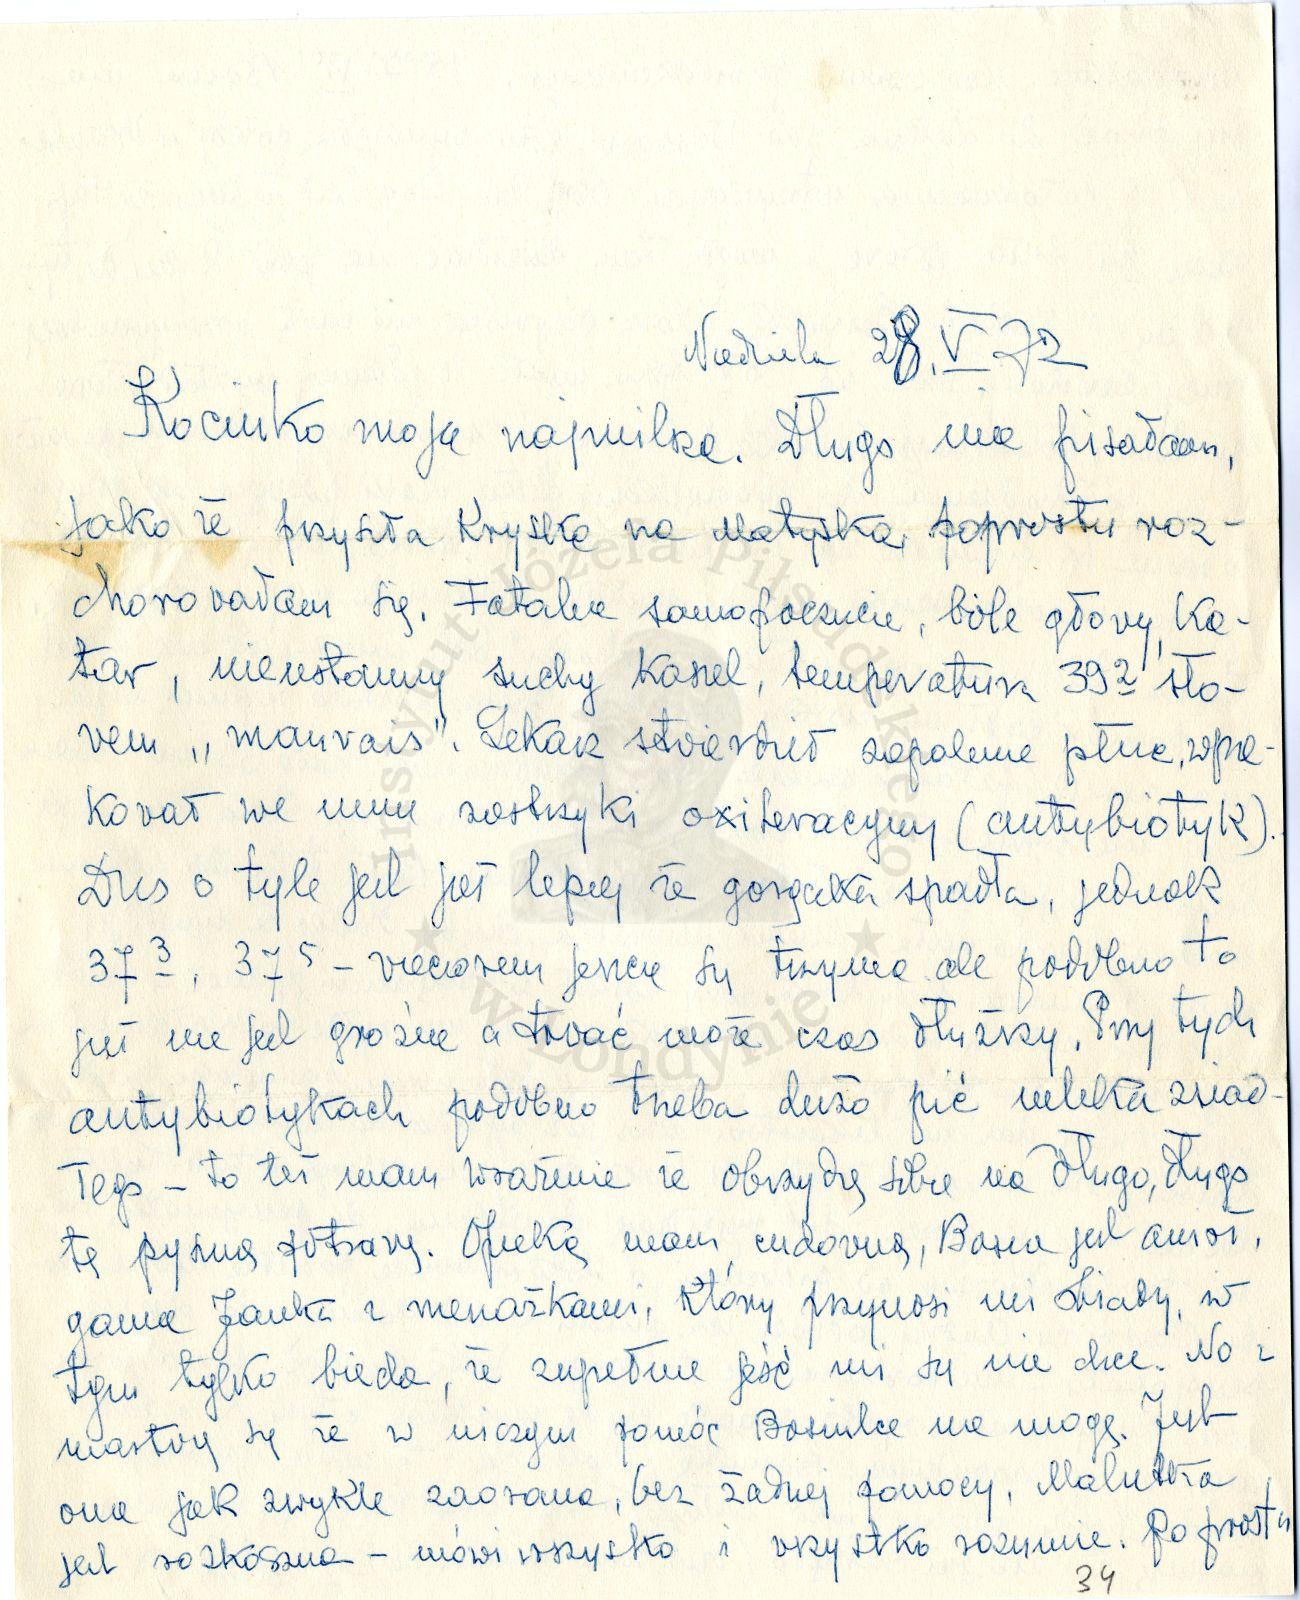 Niedziela 28.V.72
Kocinko moja najmilsza. Długo nie pisałam,
jako że przyszła kryska na Matyska, poprostu roz-
chorowałam się. Fatalne samopoczucie, bóle głowy, ka-
tar, nieustanny suchy kaszel, temperatura 39² sło-
wem „mauvais". Lekarz stwierdził zapalenie płuc, wpa-
kował we mnie zastrzyki oxiteracyny (antybiotyk).
Dziś o tyle jest już lepiej że gorączka spadła, jednak
37³, 37⁵ – wieczorem jeszcze się trzyma ale podobno to
już nie jest groźne a trwać może czas dłuższy. Przy tych
antybiotykach podobno trzeba dużo pić mleka zsiad-
łego – to też mam wrażenie że obrzydzę sobie na długo, długo
tę pyszną potrawę. Opiekę mam cudowną, Basia jest anioł,
gania Janka z menażkami, który przynosi mi obiady, w
tym tylko bieda, że zupełnie jeść mi się nie chce. No i
martwię się że w niczym pomóc Basiulce nie mogę. Jest
ona jak zwykle zaorana, bez żadnej pomocy. Malutka
jest rozkoszna – mówi wszystko i wszystko rozumie. Po prostu
34
Instytut Józefa Piłsudskiego
w Londynie